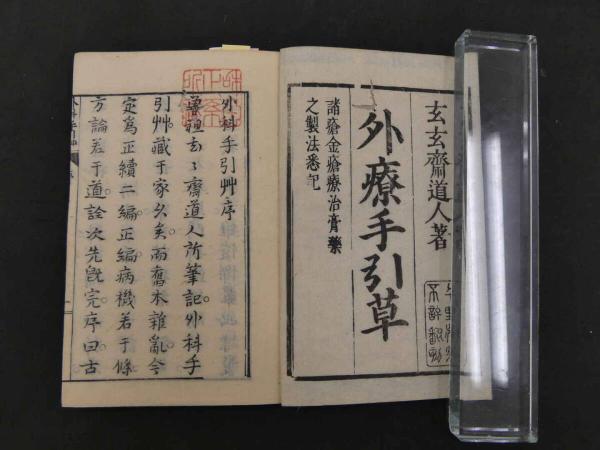 玄玄齋道人著
外療手引草
諸瘡金瘡療治膏藥
之製法悉記
外科手引艸序
玄〻齋道人所筆記外科手
引艸藏于家久矣而舊本雜亂今
定爲正續二編正編病機若于條
方論若于道詮次先既完序曰古